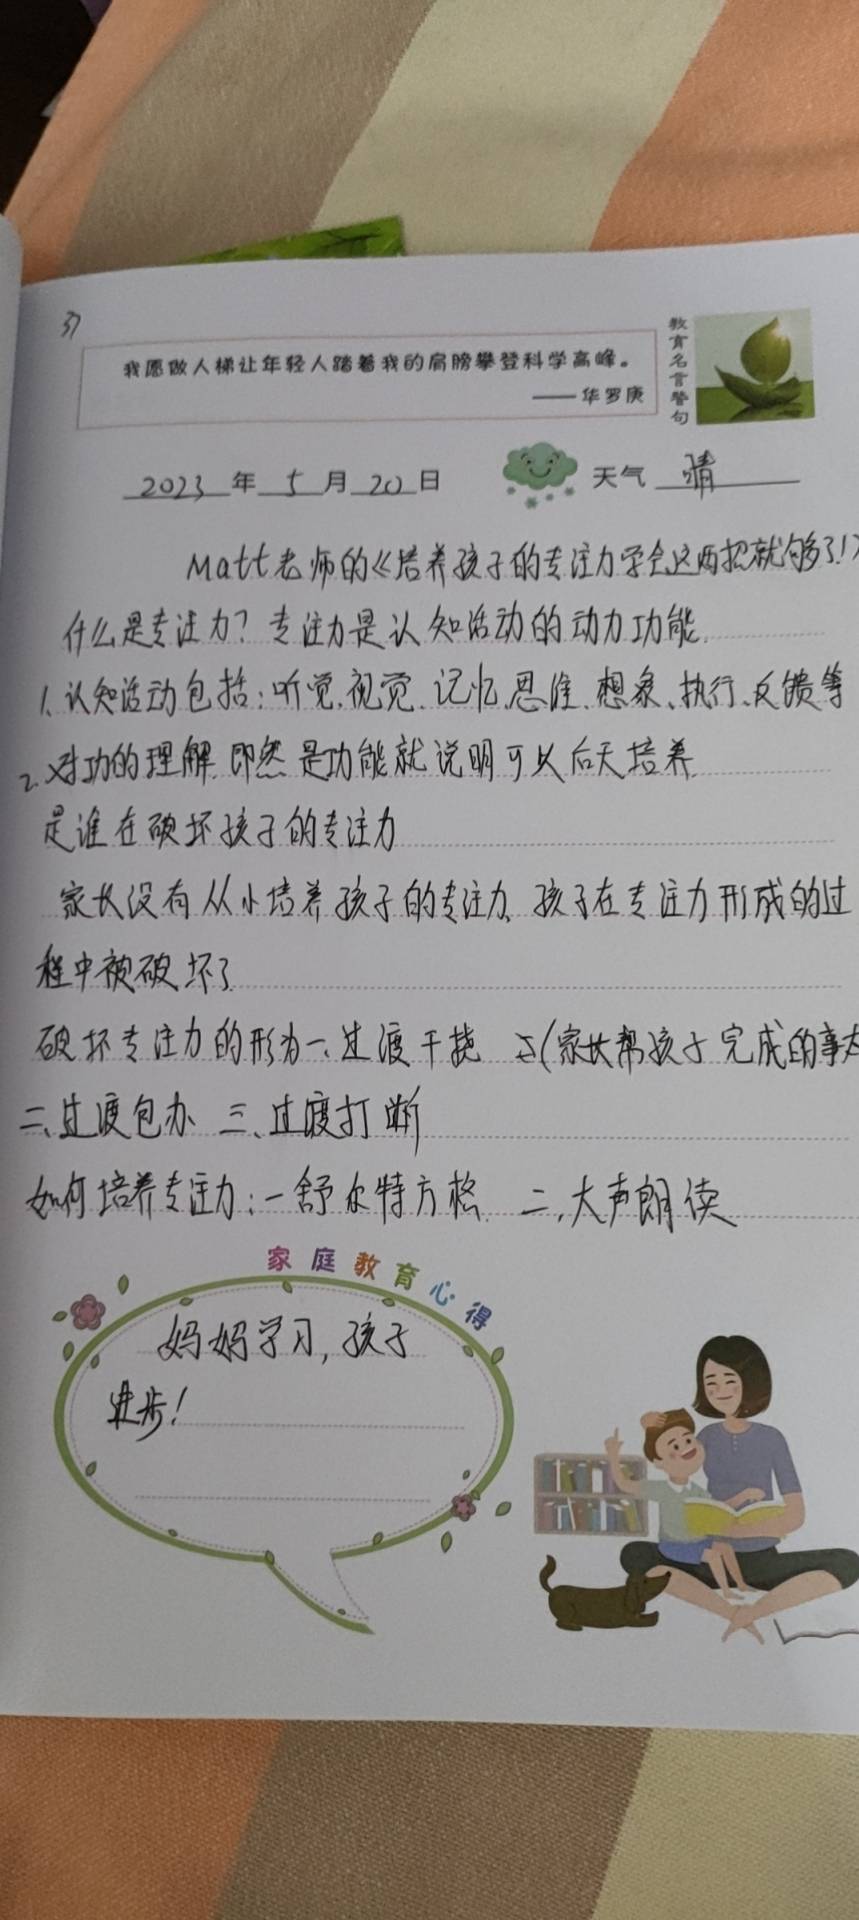 37
我愿做人梯让年轻人踏着我的肩膀攀登科学高峰。
——华罗庚
教育名言警句
2023年5月20日 天气 晴
Matt老师的《培养孩子的专注力学会这两招就够了!》
什么是专注力?专注力是认知活动的动力功能.
1.认知活动包括:听觉.视觉.记忆.思维.想象、执行、反馈等
2.对功的理解.即然是功能就说明可以后天培养.
是谁在破坏孩子的专注力
家长没有从小培养孩子的专注力.孩子在专注力形成的过
程中被破坏了
破坏专注力的形为一、过渡干挠 (家长帮孩子完成的事
二、过渡包办 三、过渡打断
如何培养专注力:一舒尔特方格. 二.大声朗读
家庭教育心得
妈妈学习,孩子
进步!